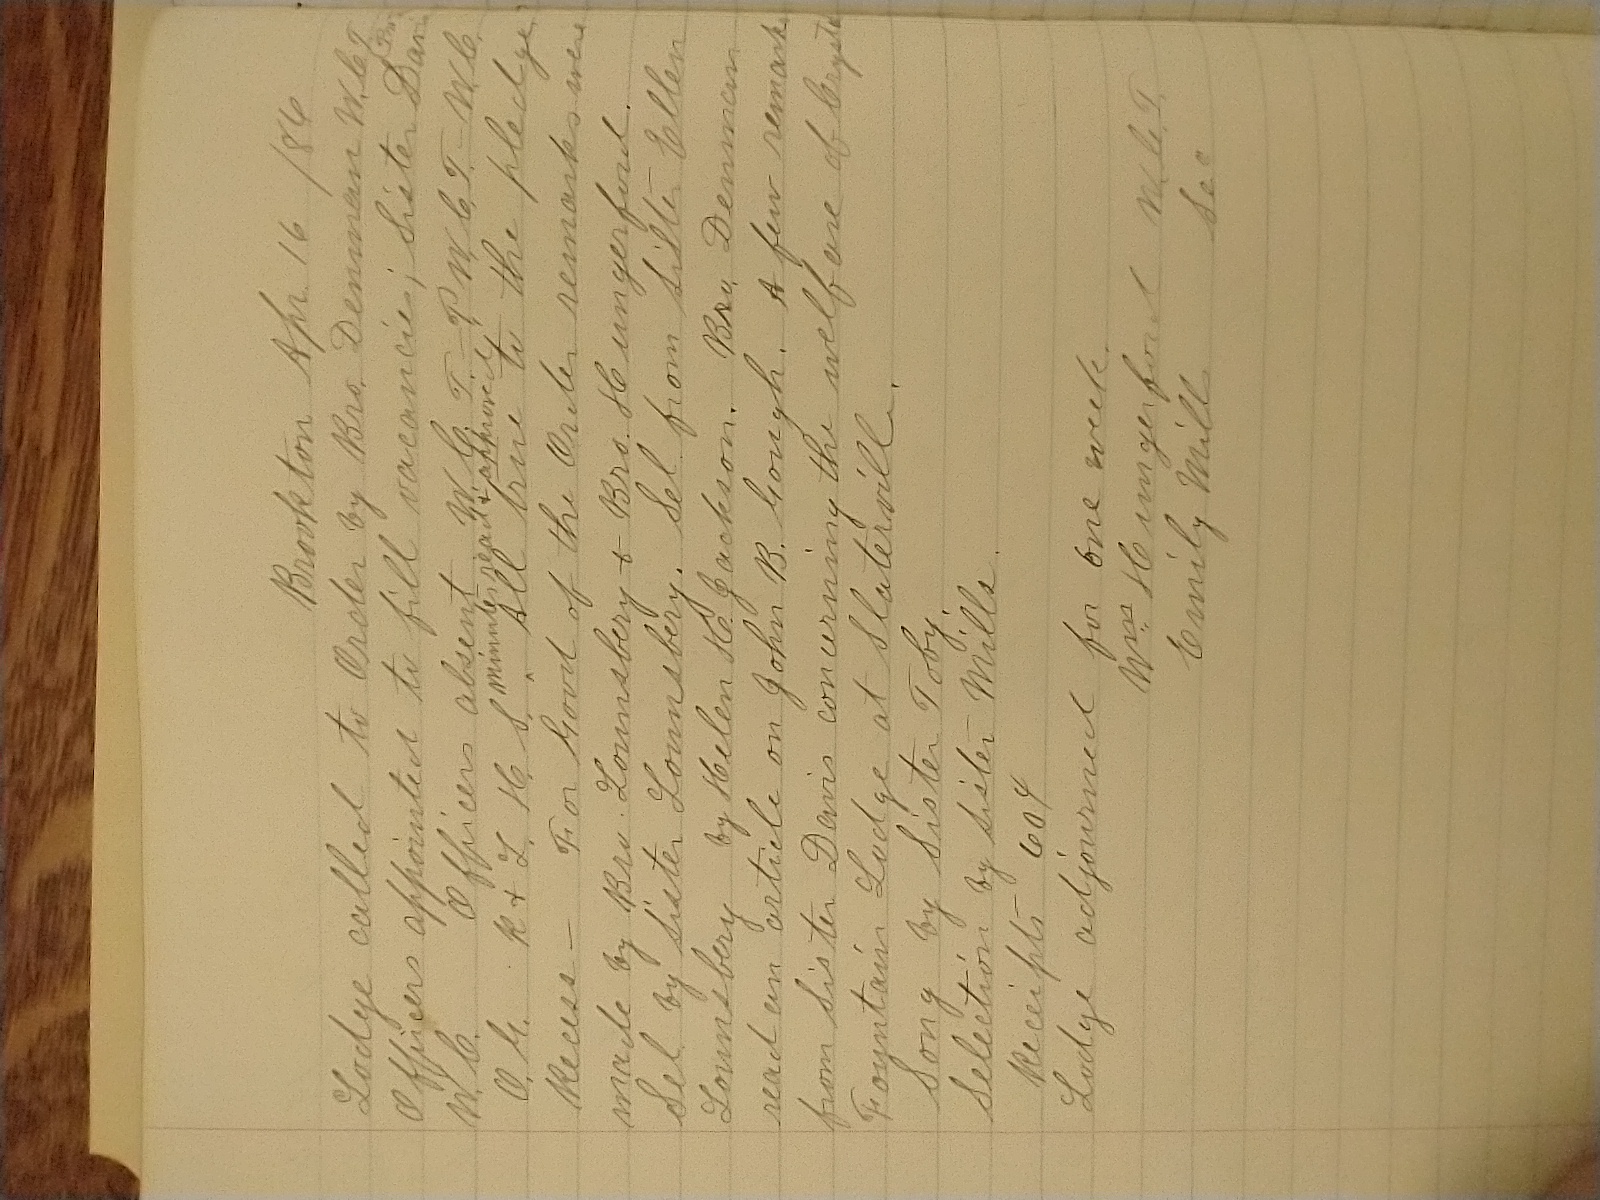 Brookton Apr. 16 /86
Lodge called to Order by Bro. Denman W.C.T.
(Pro
Officers appointed to fill vacancies; Sister Davis
W.C. Officers absent. W.C.T.–P.W.C.T.–W.C.
minutes read & approved.
O.G. R & L. H. S. ‸ All true to the pledge
Recess – For Good of the Order remarks were
made by Bro. Lounsbery & Bro. Hungerford.
Sel. by Sister Lounsbery. Sel. from Sister Ellen
Lounsbery by Helen H. Jackson. Bro. Denman
read an article on John B. Gough. A few remarks
from Sister Davis concerning the welfare of Crystal
Fountain Lodge at Slaterville.
Song by Sister Toby.
Selection by Sister Mills.
Receipts 60¢
Lodge adjourned for one week.
Wm Hungerford W.C.T.
Emily Mills Sec